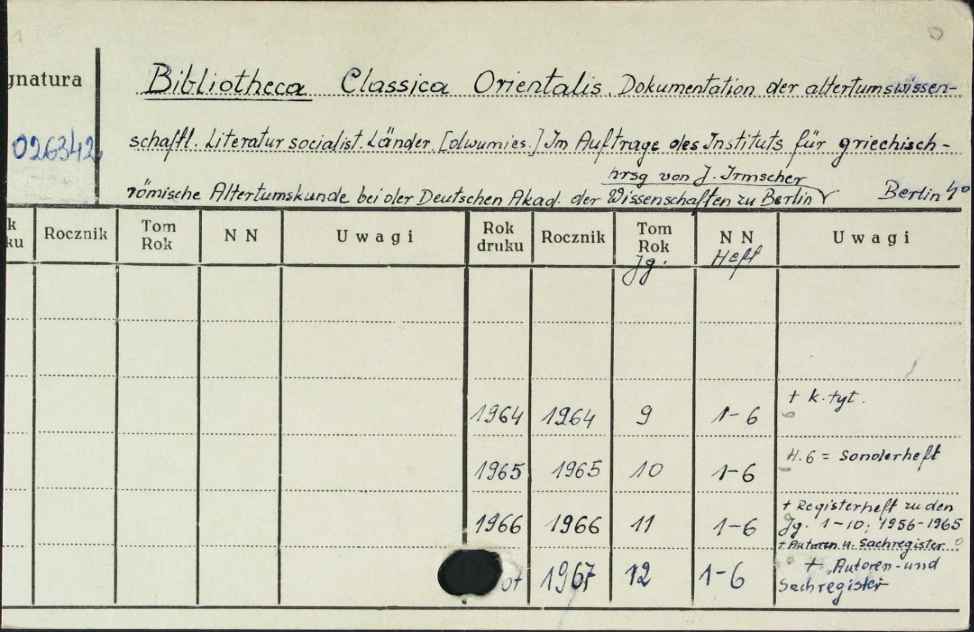 gnatura
Bibliotheca Classica Orientalis. Dokumentation der altertumswissen-
026342
schaftl. Literatur socialist. Länder. [dwumies.] Im Auftrage des Instituts für griechisch-
hrsg von J. Irmscher
römische Altertumskunde bei der Deutschen Akad. der Wissenschaften zu Berlin Berlin 4°
k
ku Rocznik Tom
Rok N N Uwagi Rok
druku Rocznik Tom
Rok
Jg. N N
Heft Uwagi
1964 1964 9 1-6 + k. tyt.
1965 1965 10 1-6 H. 6 = Sonderheft
1966 1966 11 1-6 + Registerheft zu den
Jg. 1-10: 1956-1965
+ Autoren u. Sachregister
67 1967 12 1-6 + Autoren- und
Sachregister